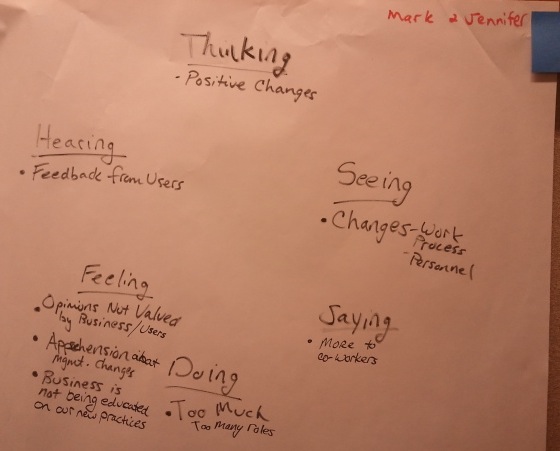 Mark & Jennifer
Thinking
- Positive Changes
Hearing
• Feedback from Users
Seeing
• Changes - Work
Process
- Personnel
Feeling
• Opinions Not Valued
by Business/Users
• Apprehension about
mgmt. changes
• Business is
not being educated
on our new practices
Saying
• More to
co-workers
Doing
• Too Much
Too Many roles